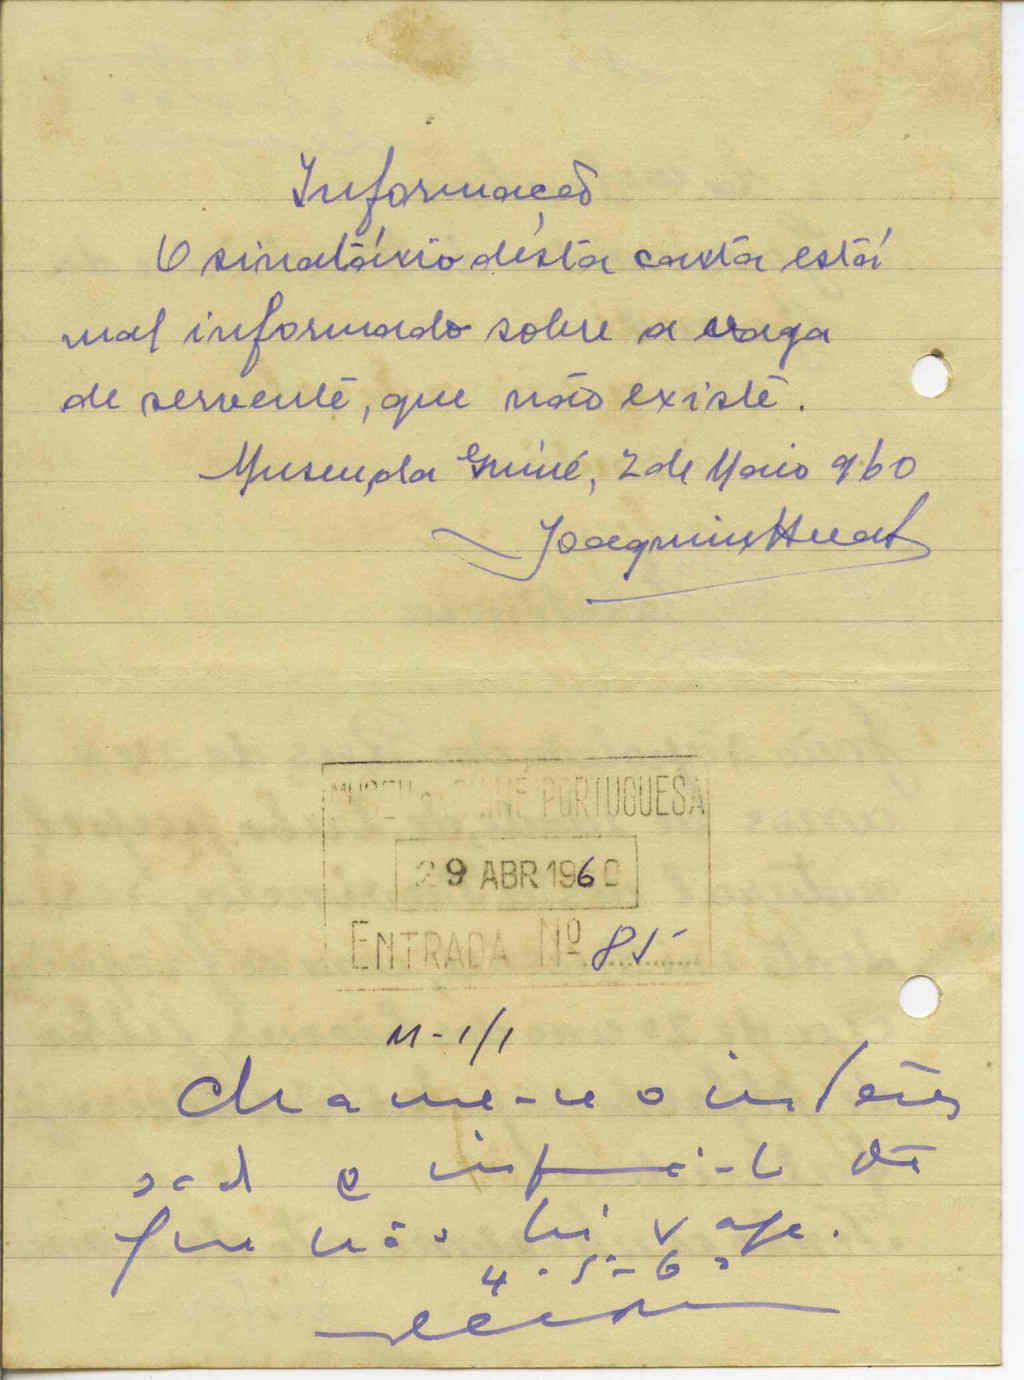 Informação
O sinatário désta carta está
mal informado sobre a vaga
de servente, que não existe.
Museu da Guiné, 2 de Maio 960
Joaquim
MUSEU da GUINÉ PORTUGUESA
29 ABR 1960
ENTRADA Nº 85
M-1/1
Chame-se o interes
sado e informe-o de
que não há vaga.
4-5-60